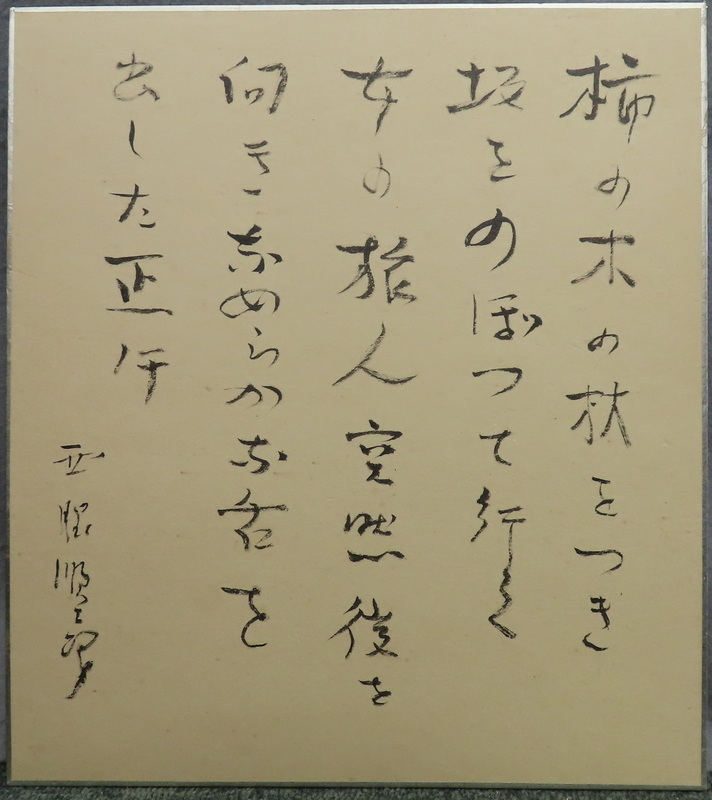 柿の木の杖をつき
坂をのぼつて行く
女の旅人突然後を
向きなめらかな舌を
出した正午
西脇順三郎